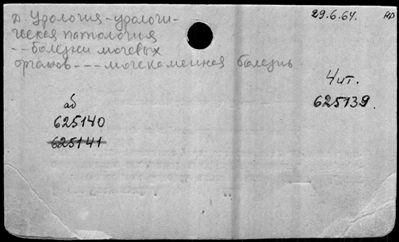 д Урология-урологи-
ческая патология
--болезни мочевых
органов---мочекаменная болезнь
29.6.64.
4 ит.
625139.
аб
625140
625141